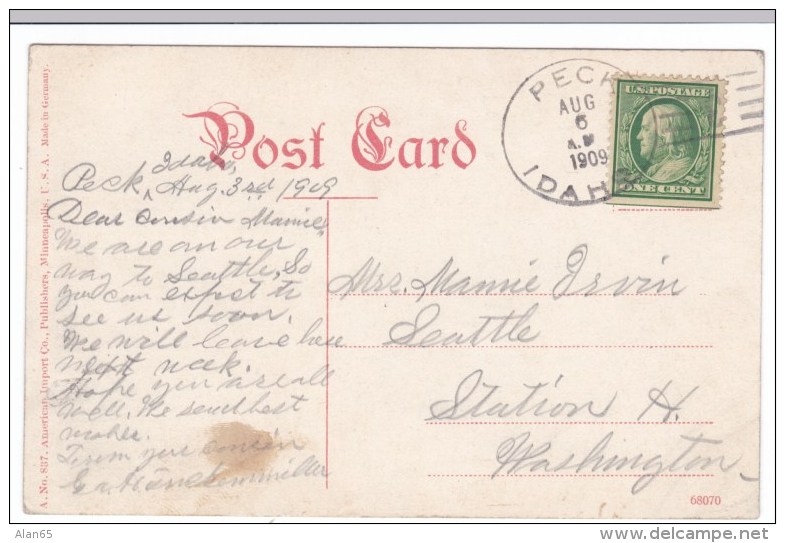 A. No. 837. American Import Co., Publishers, Minneapolis, U. S. A. Made in Germany.
Post Card
PECK
AUG
6
A.M
1909
IDAHO
U.S. POSTAGE
ONE CENT
Idaho,
Peck, Aug. 3rd 1909
Dear Cousin Mamie,
We are on our
way to Seattle, So
you can expect to
see us soon.
We will leave here
next week.
Hope you are all
well. We send best
wishes.
From your cousin
Mrs. Mamie Irvin
Seattle
Station H.
Washington
68070
Alan65
www.delcampe.net